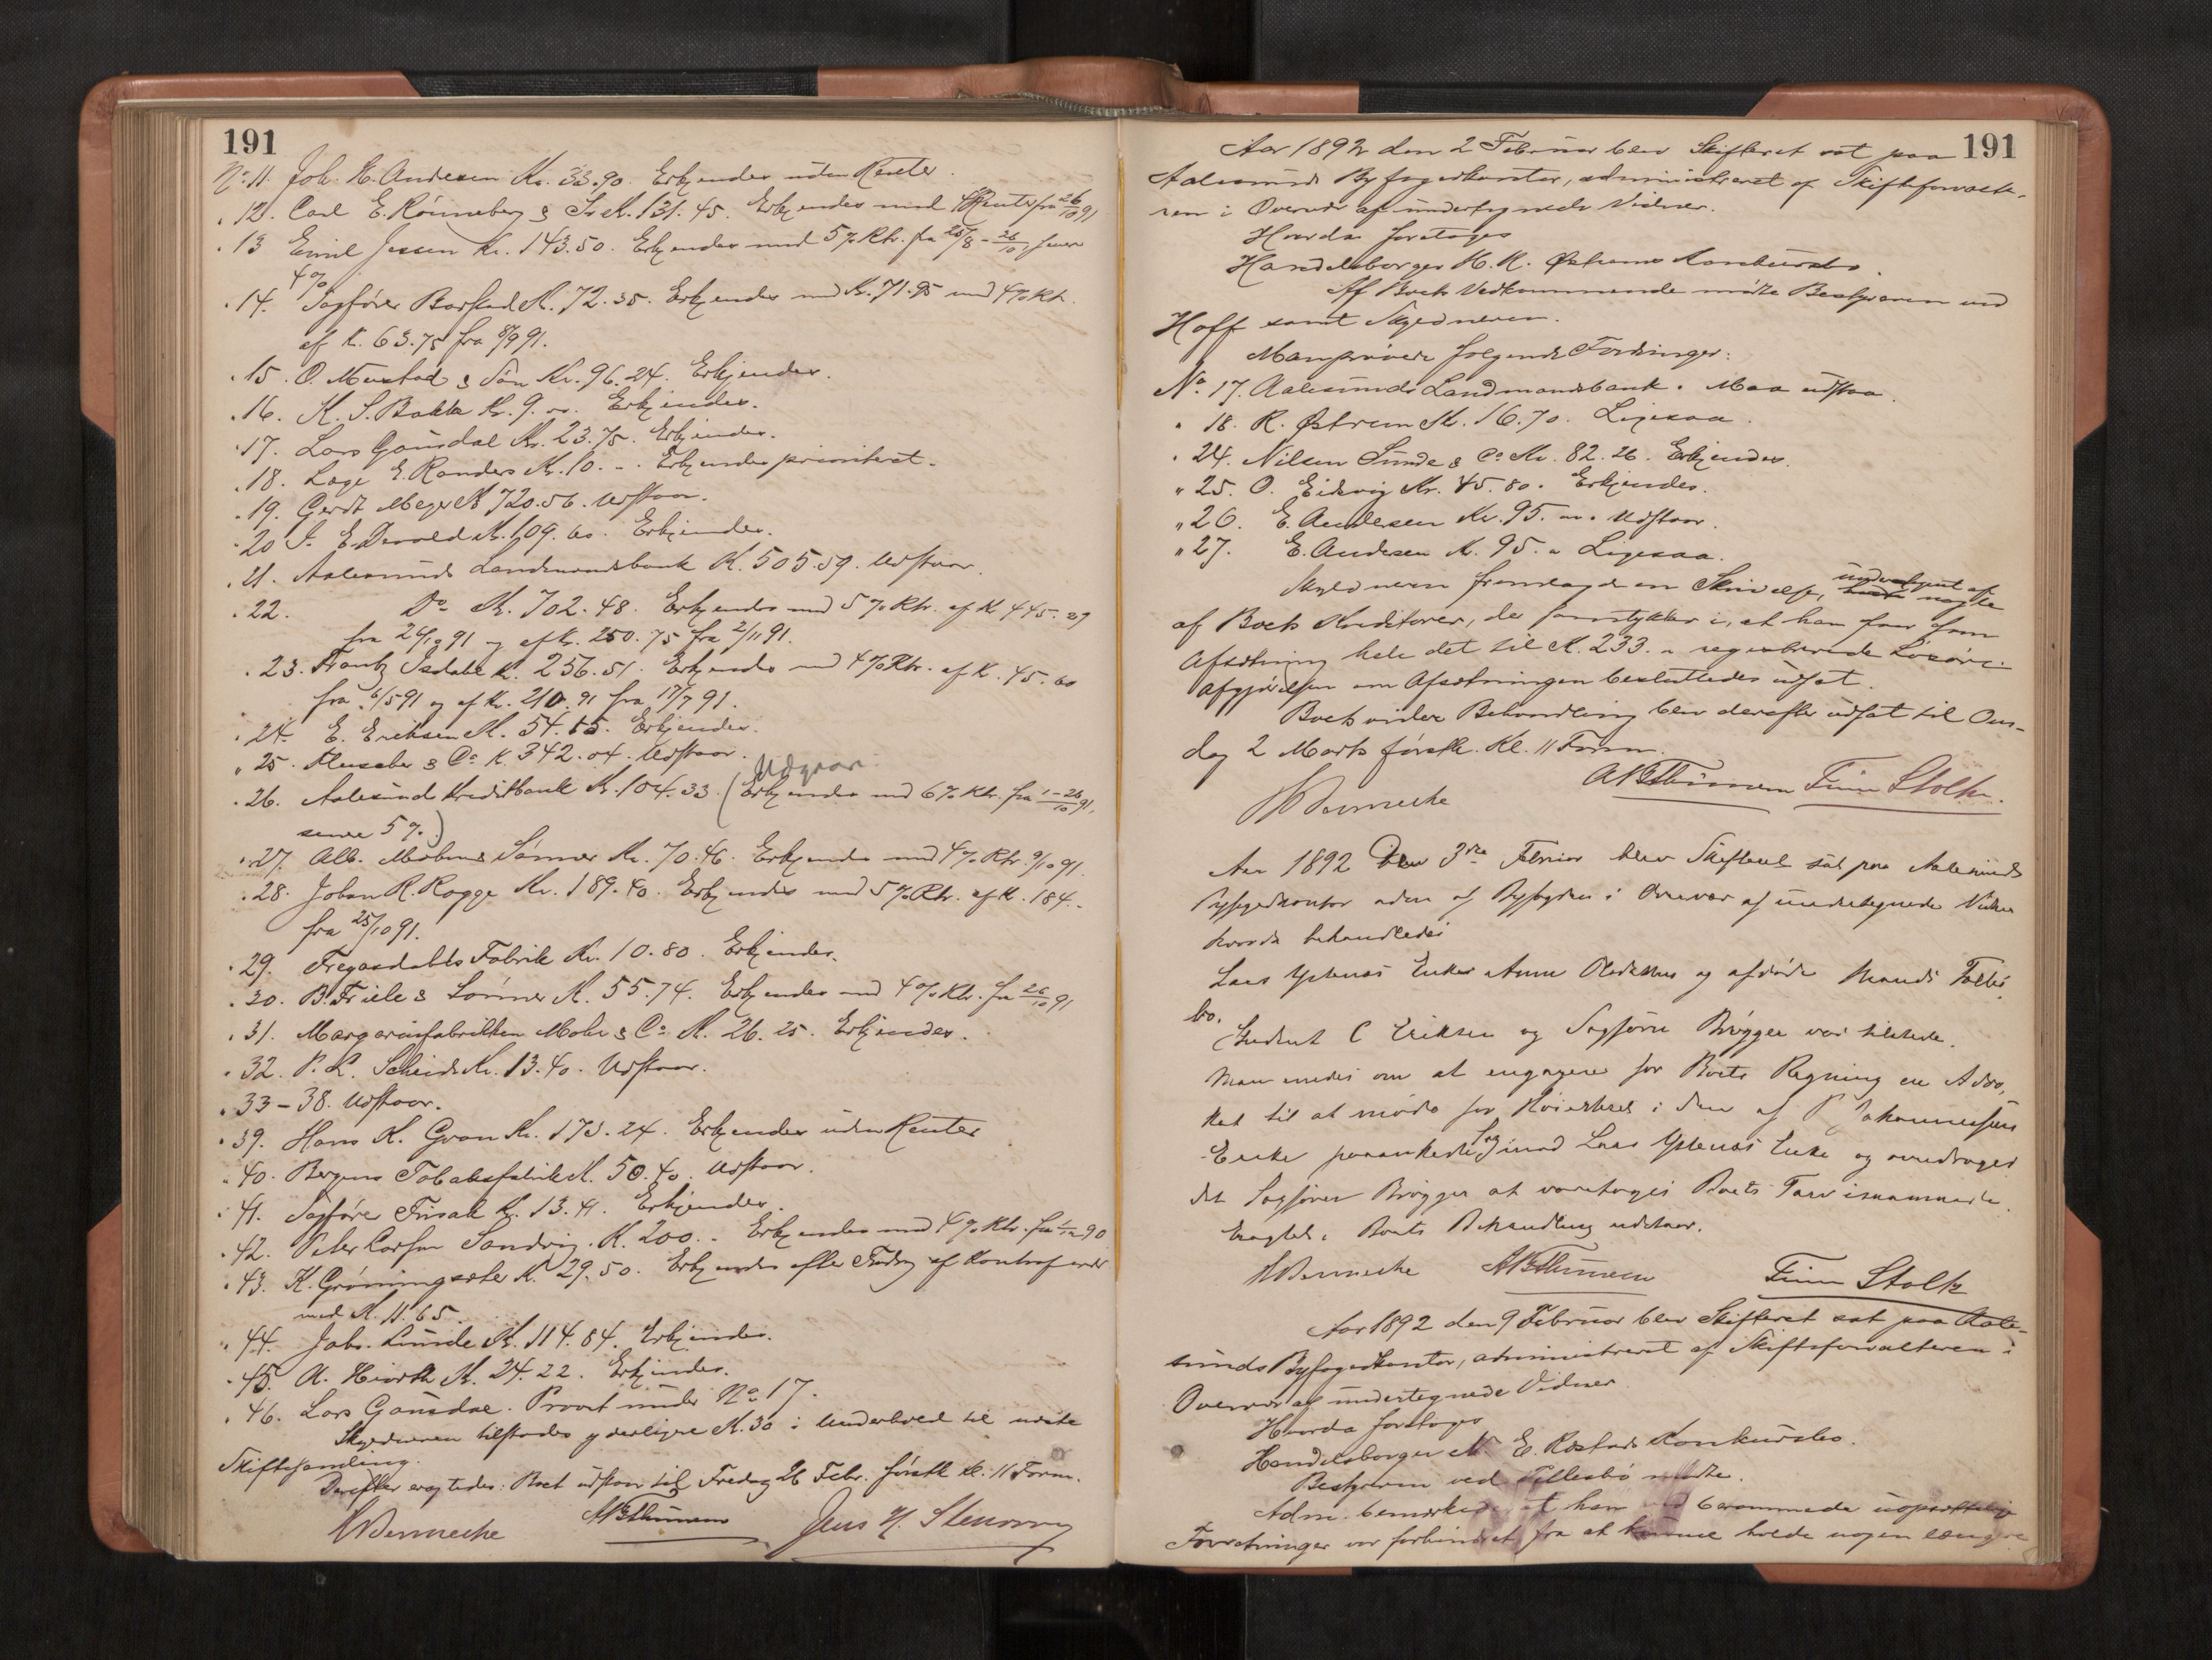 191
No. 11. Joh. K. Andresen Kr. 33.90. Erkjendes uden Renter.
" 12. Carl E. Rönneberg & S. Kr. 131.45. Erkjendes med Renter fra 26/10 91
" 13 Emil Jessen Kr. 143.50. Erkjendes med 5 % Rtr. fra 25/8 - 26/10, senere
4 %
" 14. Sagförer Kr. 72.35. Erkjendes med Kr. 71.95 med 4 % Rtr.
af Kr. 63.75 fra 8/9 91.
" 15. O. Mustad & Sön Kr. 96.24. Erkjendes.
" 16. K. S. Bakke Kr. 9. Erkjendes.
" 17. Lars Gausdal Kr. 23.75. Erkjendes.
" 18. Læge E. Randers Kr. 10. - . Erkjendes prioriteret.
" 19. Gerdt Meyer Kr 720.56. Udstaar.
" 20 E. Devold Kr. 109.60. Erkjendes.
" 21. Aalesunds Landmandsbank Kr. 505.59. Udstaar.
" 22. Do Kr. 702.48. Erkjendes med 5 % Rtr. af Kr 445.29
fra 24/10 91 og af Kr. 250.75 fra 2/11 91.
" 23. Frantz Isdahl Kr. 256.51. Erkjendes med 4 % Rtr. af Kr. 45.60
fra 6/5 91 og af Kr. 210.91 fra 17/7 91.
" 24. E. Eriksen Kr. 54.55. Erkjendes.
" 25. & Co Kr. 342.04. Udstaar.
Udgaar.
" 26. Aalesunds Kreditbank Kr. 104.33. (Erkjendes med 6 % Rtr. fra 1-26/10 91,
senere 5 %.)
" 27. Alb. Sönner Kr. 70.46. Erkjendes med 4 % Rtr. 9/10 91.
" 28. Johan R. Rogge Kr. 189.40. Erkjendes med 5 % Rtr. af Kr. 184.-
fra 25/10 91.
" 29. Fabrik Kr. 10.80. Erkjendes.
" 30. B. Friele & Sönner Kr. 55.74. Erkjendes med 4 % Rtr. fra 26/10 91
" 31. Margarinfabrikken Mohr & Co. Kr. 26.25. Erkjendes.
" 32. P. L. Kr. 13.40. Udstaar.
" 33-38. Udstaar.
" 39. Hans K. Gran Kr. 173.24. Erkjendes uden Renter
" 40. Bergens Tobaksfabrik Kr. 50.40. Udstaar.
" 41. Sagförer Frisak Kr. 13.41. Erkjendes.
" 42. Peter Larsen Sandvig. Kr. 200. - Erkjendes med 4 % Rtr. fra 90
" 43. K. Gröningsæter Kr. 29.50. Erkjendes efter Fradrag af
med Kr. 11.65.
" 44. Jahs. Lunde Kr. 114.84. Erkjendes.
" 45. A. Hiorth Kr. 24.22. Erkjendes.
" 46. Lars Gausdal. Prövet under No 17.
Skyldneren tilstodes yderligere Kr. 30 i Underhold til næste
Skiftesamling.
Derefter eragtedes: Boet udstaar til Fredag 26 Febr. förstk. Kl. 11 Form.
191
Aar 1892 den 2 Februar blev Skifteret sat paa
Aalesunds Byfogedkontor, administreret af Skifteforvalte-
ren i Overvær af undertegnede Vidner.
Hvorda foretoges
Handelsborger K. K. Östrems Konkursbo.
Af Boets Vedkommende mötte Bestyreren ved
Hoff samt Skyldneren.
Man prövede fölgende Fordringer:
No. 17. Aalesunds Landmandsbank. Maa udstaa.
" 18. R. Östrem Kr. 16.70. Ligesaa.
" 24. Nilsen Sunde & Co Kr. 82.26. Erkjendes.
" 25. O. Eidsvig Kr. 45.80. Erkjendes.
" 26. E. Andersen Kr. 95. Udstaar.
" 27. E. Andersen Kr. 95. " Ligesaa.
Skyldneren fremlagde en Skrivelse, undertegnet af nogle
af Boets Kreditorer, der samtykker i, at han faar som
Afsætning hele det til Kr. 233. " registrerede Lösöre.
Afgjörelsen om Afsætningen besluttedes udsat.
Boets videre Behandling blev derefter udsat til Ons-
dag 2 Marts förstk. Kl. 11 Form.
Finn Stoltz.
Aar 1892 den 3die Februar blev Skifteret sat paa Aalesunds
Byfogedkontor adm. af Byfogden i Overvær af undertegnede Vidner
hvorda behandledes
Lars Ystenæs Enkes Anne og afdöde Mands Fælles-
bo.
C Eriksen og Sagförer Brögger var tilstede.
Man enedes om at engagere for Boets Regning en Advo-
kat til at möde for Höiesteret i den af P Johannessens
Enke paaankede Sag mod Lars Ystenæs Enke og overdroges
det Sagförer Brögger at varetages Boets Tarv isaamaade.
Eragtet: Boets Behandling udstaar.
Finn Stoltz
Aar 1892 den 9 Februar blev Skifteret sat paa Aale-
sunds Byfogedkontor, administreret af Skifteforvalteren i
Overvær af undertegnede Vidner
Hvorda foretoges
Handelsborger N. E. Konkursbo.
Bestyreren ved mötte.
Adm. bemærkede at han ved berammede uopsættelige
Forretninger var forhindret fra at kunne holde nogen længere